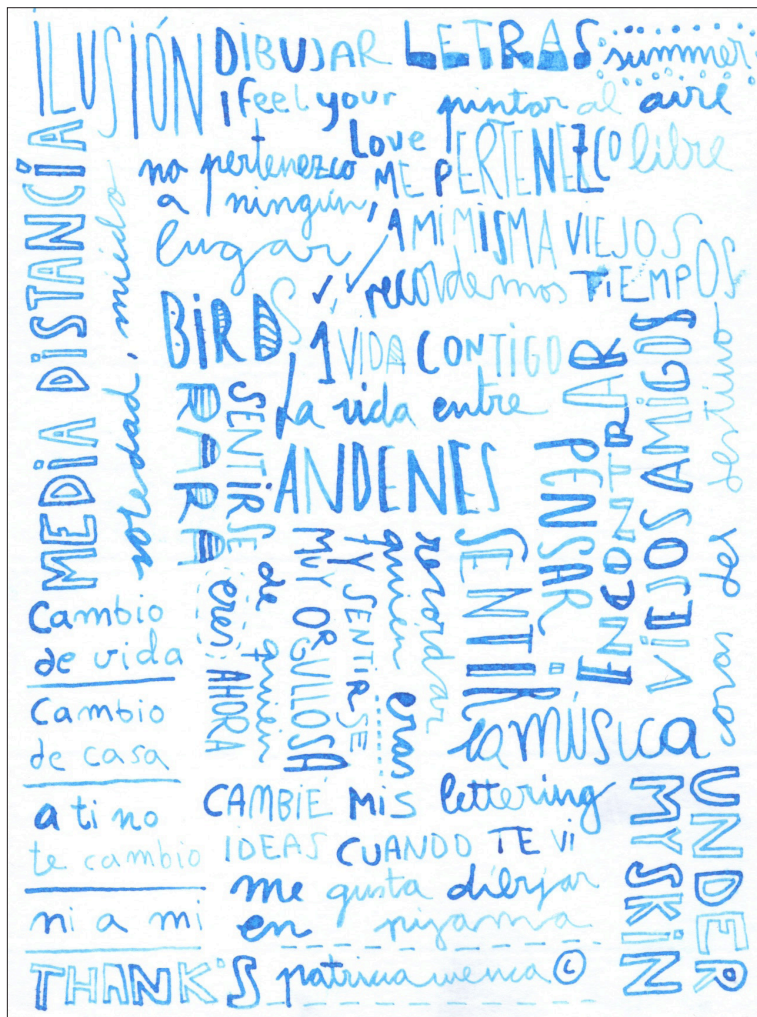 ILUSIÓN
DIBUJAR LETRAS
summer
I feel your
Love
pintar al aire
libre
no pertenezco
a ningún
lugar
ME PERTENEZCO
A MI MISMA
VIEJOS
recordemos TIEMPOS
MEDIA DISTANCIA
soledad, miedo
BIRDS
1 VIDA CONTIGO
La vida entre
ANDENES
SENTIRSE
RARA
PENSAR
ENCONTRAR
VIEJOS AMIGOS
cosas del destino
SENTIR
recordar
quien eras
Y SENTIRSE
MUY ORGULLOSA
de quien
eres AHORA
la MÚSICA
Cambio
de vida
Cambio
de casa
a ti no
te cambio
ni a mi
CAMBIÉ MIS lettering
IDEAS CUANDO TE VI
me gusta dibujar
en pijama
UNDER
MY SKIN
THANK'S
patricia